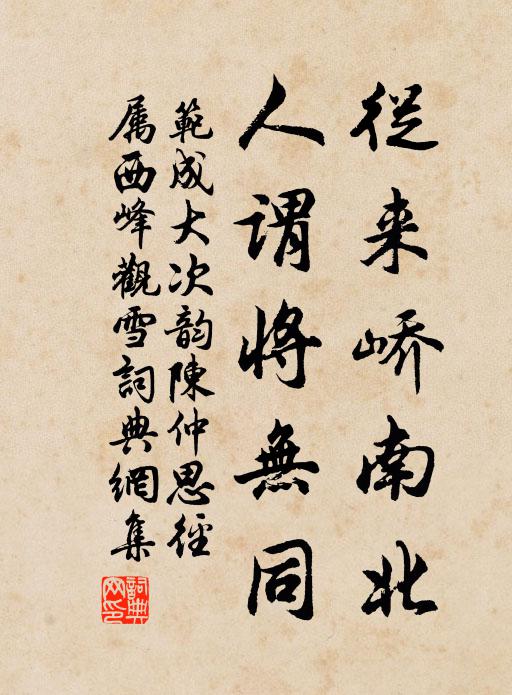 從来嶠南北
人謂將無同
範成大次韵陳仲思徑
属西峰觀雪詞典網集
詞典網印